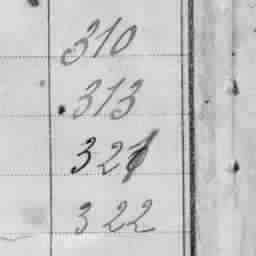 310
313
321
322